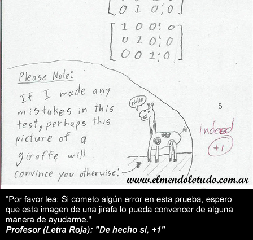 0 1 0 ¦ 0
1 0 0 ¦ 0
0 1 0 ¦ 0
0 0 1 ¦ 0
Please Note:
If I made any
mistakes in this
test, perhaps this
picture of a
giraffe will
convince you otherwise!
5
Indeed
+1
www.elmendoletudo.com.ar
"Por favor lea: Si cometo algún error en esta prueba, espero
que esta imagen de una jirafa lo pueda convencer de alguna
manera de ayudarme."
Profesor (Letra Roja): "De hecho si, +1"